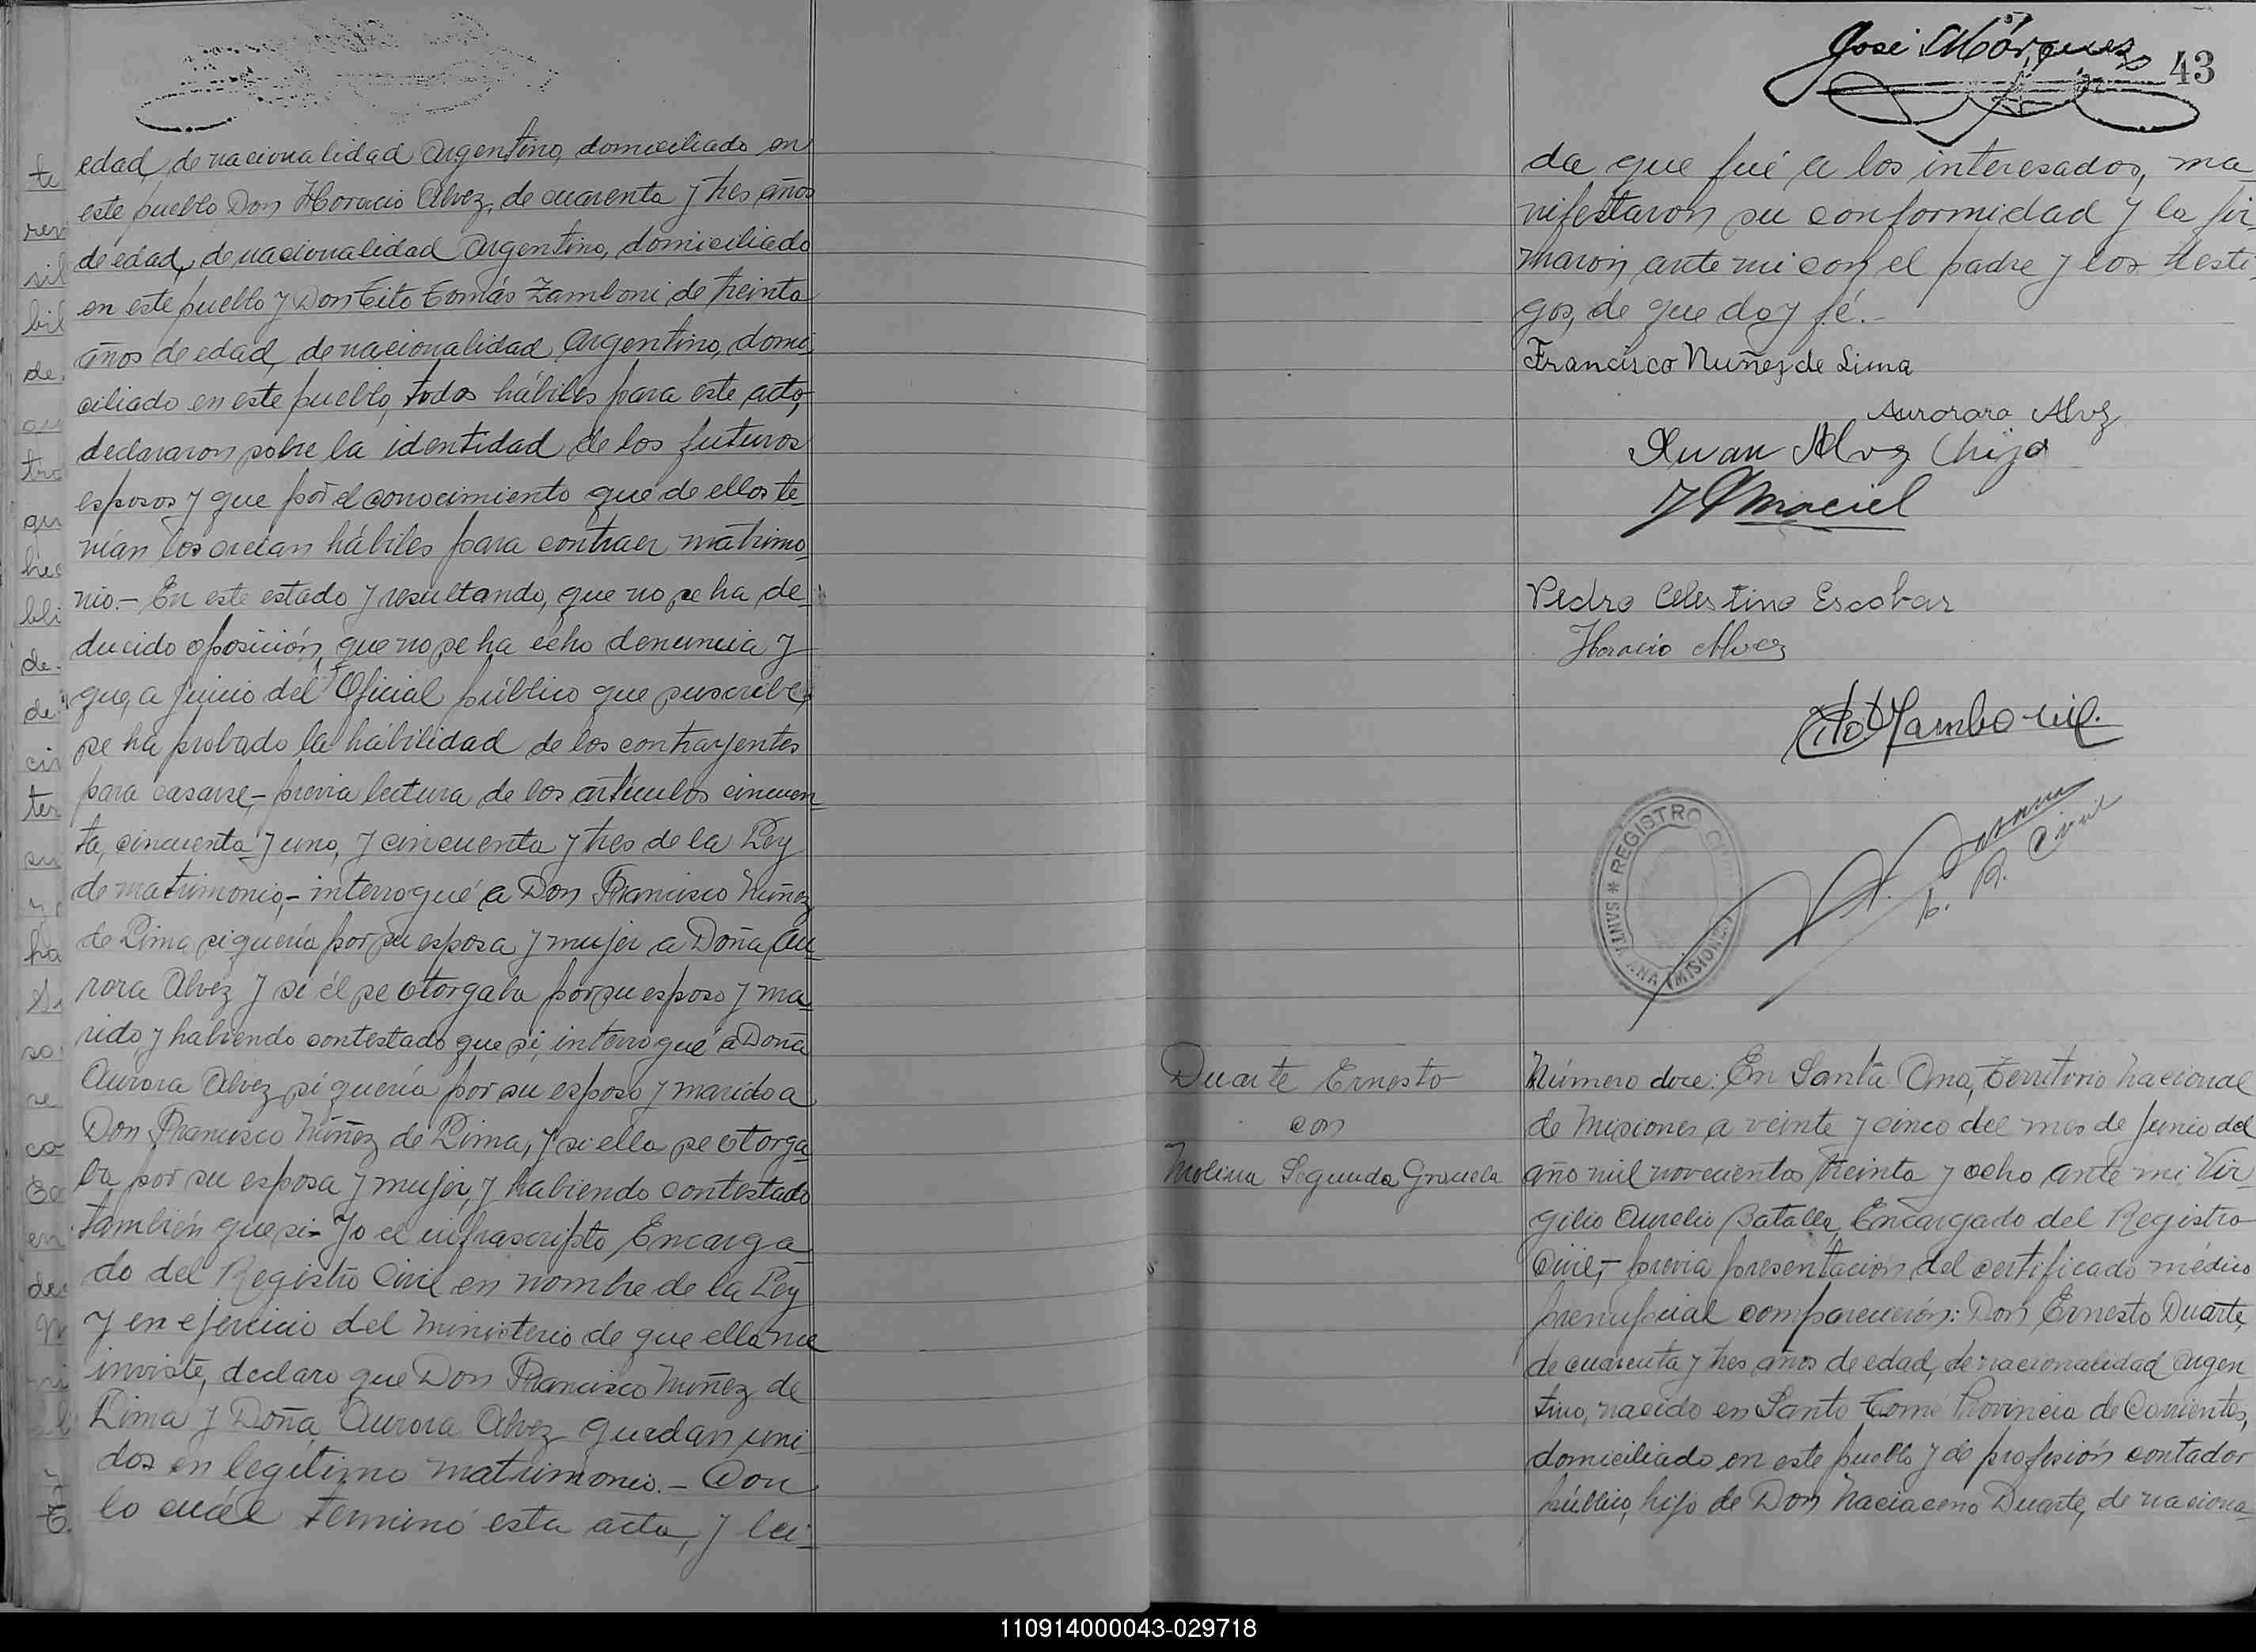 edad, de nacionalidad Argentino, domiciliado en
este pueblo, Don Horacio Alvez, de cuarenta y tres años
de edad, de nacionalidad Argentino, domiciliado
en este pueblo y Don Tito Tomás Zamboni de treinta
años de edad, de nacionalidad Argentino, domi-
ciliado en este pueblo, todos hábiles para este acto,
declararon sobre la identidad de los futuros
esposos y que por el conocimiento que de ellos te-
nían los creían hábiles para contraer matrimo-
nio.- En este estado y resultando, que no se ha de-
ducido oposición, que no se ha echo denuncia y
que, a juicio del Oficial público que suscribe,
se ha probado la hábilidad de los contrayentes
para casarse,- previa lectura de los artículos cincuen-
ta, cincuenta y uno, y cincuenta y tres de la Ley
de matrimonio,- interrogué a Don Francisco Núñez
de Lima si quería por su esposa y mujer a Doña Au-
rora Alvez y si él se otorgaba por su esposo y ma-
rido, y habiendo contestado que si, interrogué a Doña
Aurora Alvez si quería por su esposo y marido a
Don Francisco Núñez de Lima, y si ella se otorga-
ba por su esposa y mujer, y habiendo contestado
también que si- Yo el infrascripto Encarga-
do del Registro Civil en nombre de la Ley
y en ejercicio del Ministerio de que ella me
inviste, declaro que Don Francisco Núñez de
Lima y Doña Aurora Alvez quedan uni-
dos en legítimo matrimonio.- Con
lo cuál terminó esta acta, y lei-
José Márquez
43
da que fué a los interesados, ma-
nifestaron su conformidad y la fir-
maron ante mi con el padre y los testi-
gos, de que doy fé.-
Francisco Nuñez de Lima
Aurorara Alvz
Juan Alvz Chijo
Maciel
Pedro Celestino Escobar
Horacio Alvez
Tito T Zamboni
REGISTRO CIVIL
SANTA ANA (MISIONES)
E. R. Civil
Duarte Ernesto
con
Molina Segunda Graciela
Número doce: En Santa Ana, Territorio Nacional
de Misiones a veinte y cinco del mes de Junio del
año mil novecientos treinta y ocho ante mi, Vir-
gilio Aurelio Batalla, Encargado del Registro
Civil,- previa presentación del certificado médico
prenupcial comparecieron: Don Ernesto Duarte,
de cuarenta y tres años de edad, de nacionalidad Argen
tino, nacido en Santo Tomé Provincia de Corrientes,
domiciliado en este pueblo y de profesión contador
público, hijo de Don Naciaceno Duarte, de naciona-
110914000043-029718